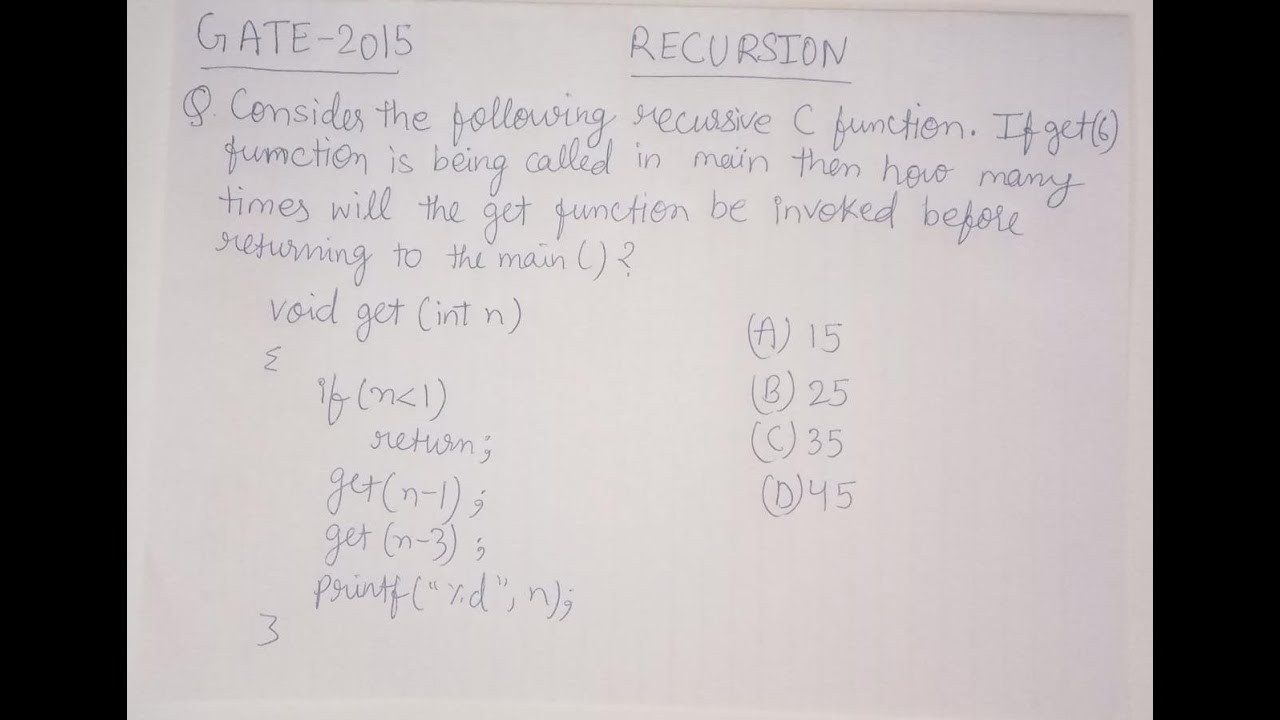 GATE-2015
RECURSION
Q. Consider the following recursive C function. If get(6)
function is being called in main then how many
times will the get function be invoked before
returning to the main ( ) ?
void get (int n)
{
if (n<1)
return;
get (n-1) ;
get (n-3) ;
printf ("%d", n);
}
(A) 15
(B) 25
(C) 35
(D) 45